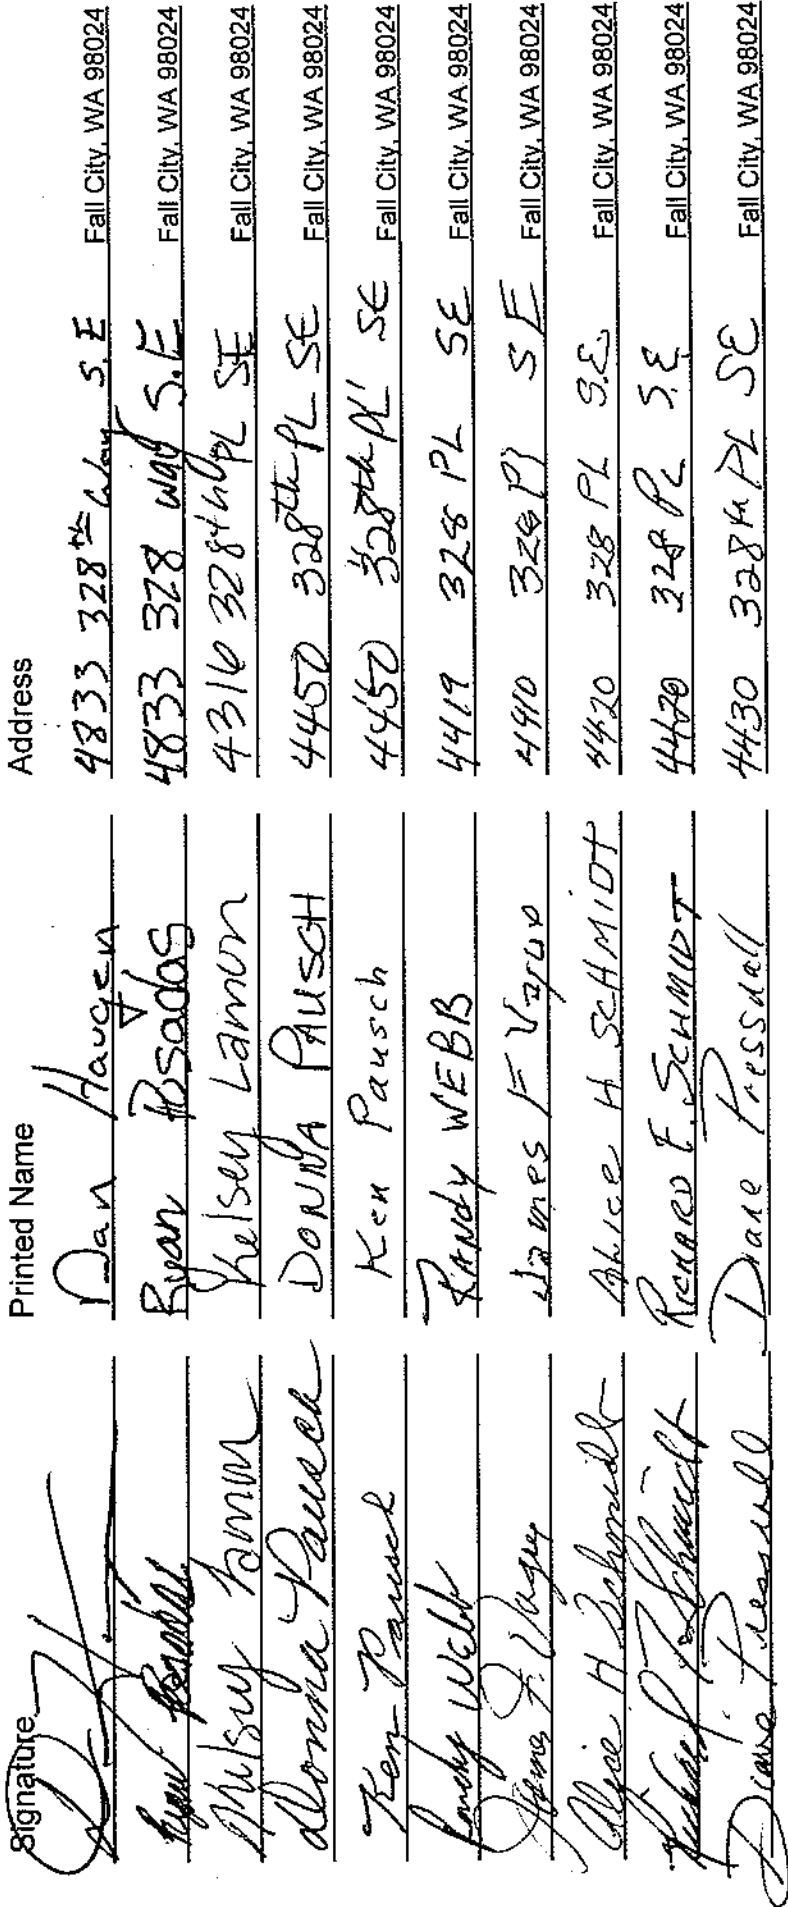 Signature Printed Name Address
Dan Haugen 4833 328th Way S.E Fall City, WA 98024
Ryan Posadas 4833 328 way S.E Fall City, WA 98024
Kelsey Lamon 4316 328th PL SE Fall City, WA 98024
Donna Pausch DONNA PAUSCH 4450 328th PL SE Fall City, WA 98024
Ken Pausch Ken Pausch 4450 328th PL SE Fall City, WA 98024
Randy Webb RANDY WEBB 4419 328 PL SE Fall City, WA 98024
James F 328 Pl SE Fall City, WA 98024
Alice H Schmidt Alice H SCHMIDT 4420 328 PL S.E. Fall City, WA 98024
Richard F Schmidt RICHARD F. SCHMIDT 4420 328 PL S.E. Fall City, WA 98024
Diane Pressnall Diane Pressnall 4430 328th PL SE Fall City, WA 98024